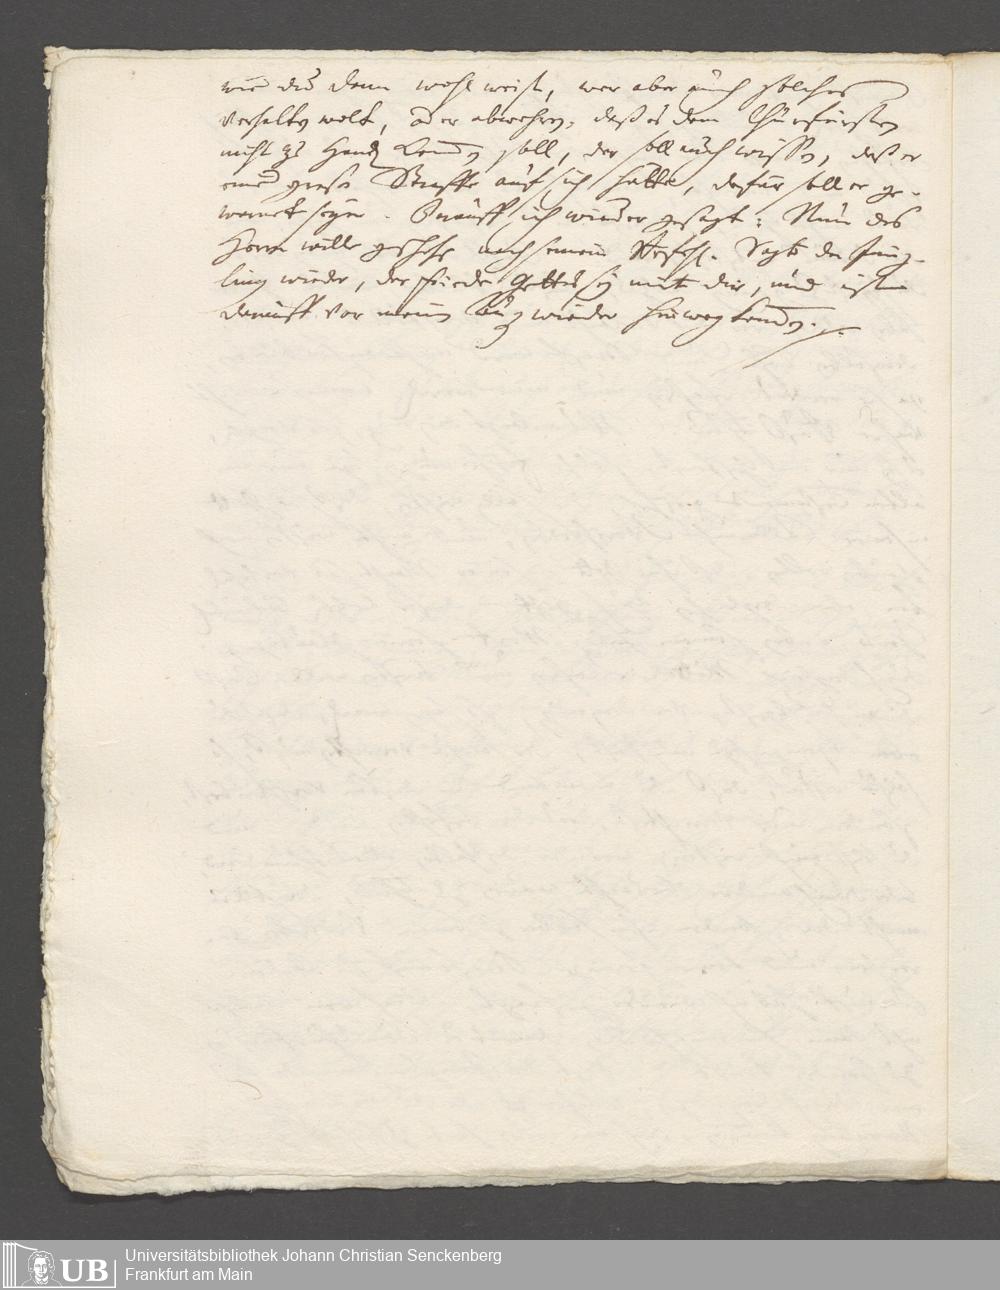 wie du dann wohl weist, wer aber auch solches
verhalten wolt, oder abwehren, daß es dem Churfürsten
nicht zu Handen kommen soll, der soll auch wissen, daß er
eine große Straffe auf sich hatte, dafür soll er ge-
warnet seyn. Drauff ich wieder gesagt: Nun des
Herrn wille geschehe nach seinem Befehl. Sagte der Jüng-
ling wieder, der friede Gottes sey mit dir, und ist
darauff vor meinen Augen wieder hinweg kommen.
UB
Universitätsbibliothek Johann Christian Senckenberg
Frankfurt am Main